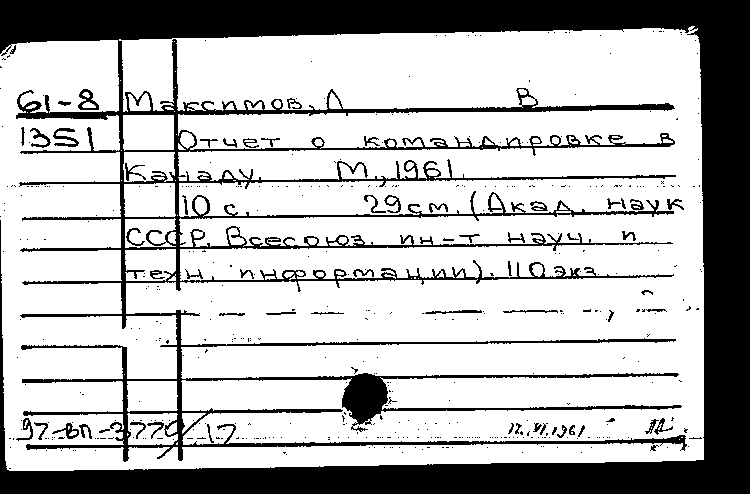 61-8 Максимов, Л В
1351 Отчет о командировке в
Канаду. М., 1961.
10 с. 29см. (Акад. наук
СССР. Всесоюз. ин-т науч. и
техн. информации). 110 экз.
97-вп-3779/17 12.VI.1961